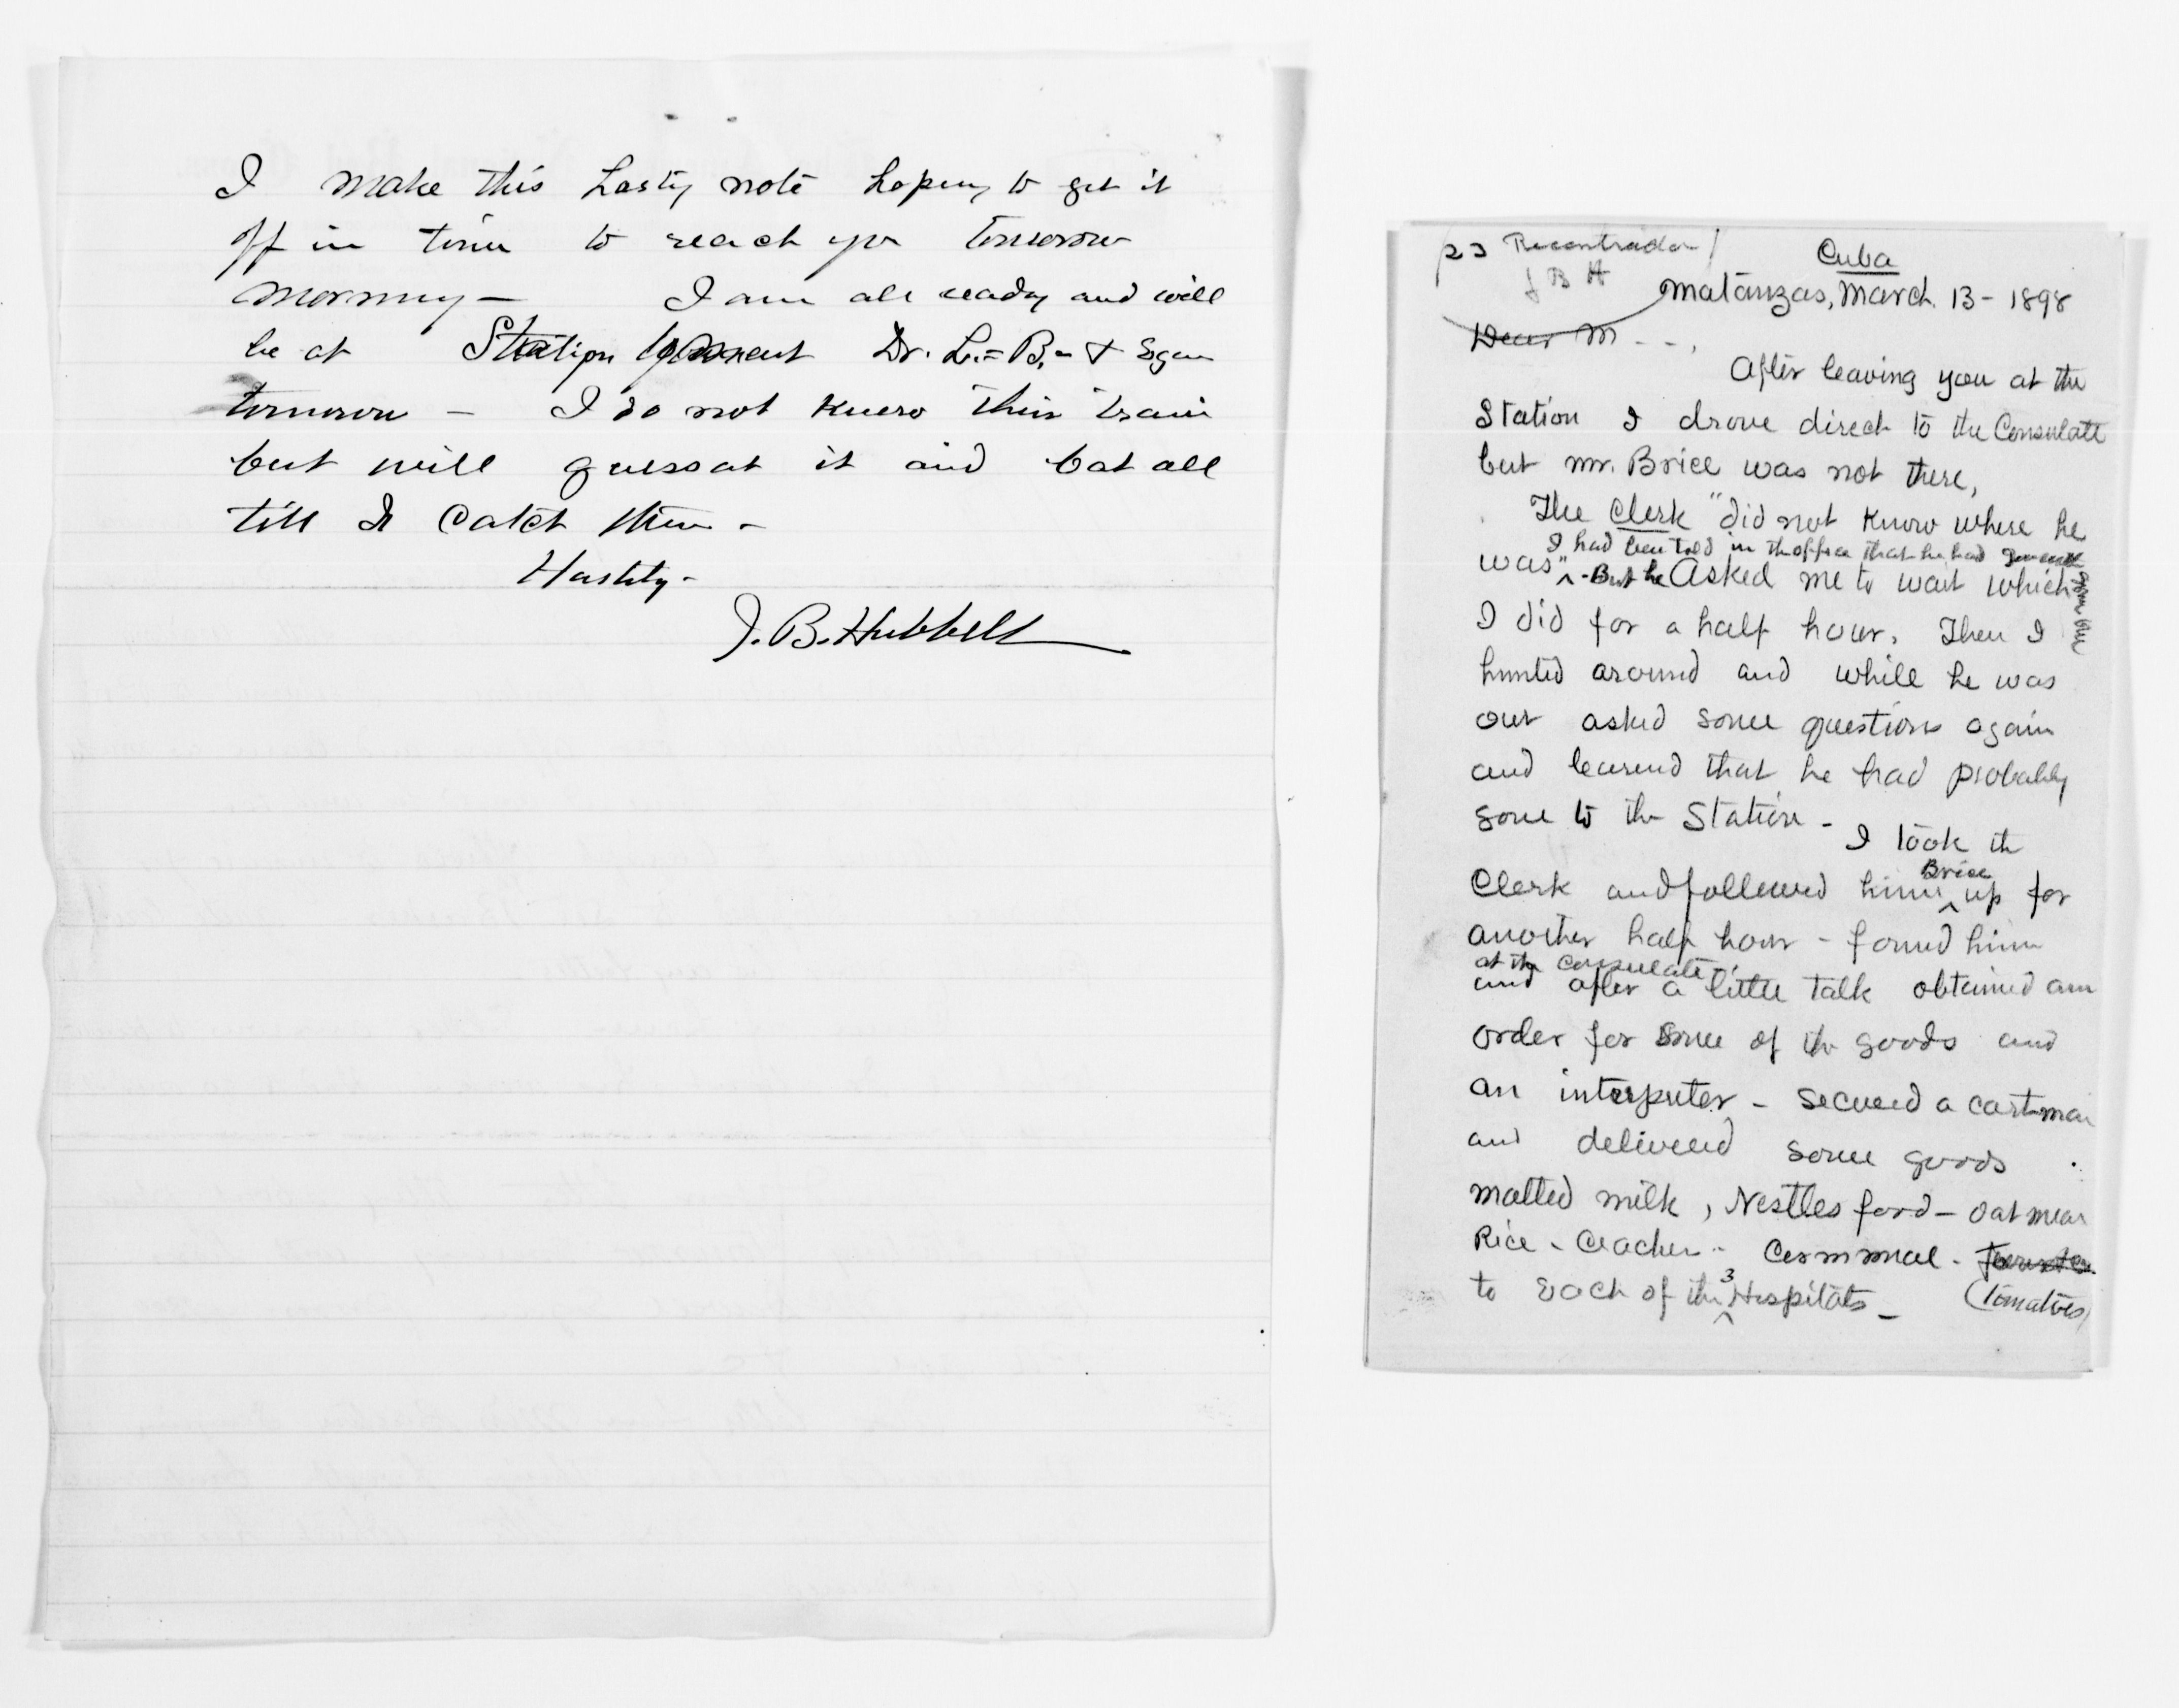 I make this hasty note hoping to get it
off in time to reach you tomorrow
morning – I am all ready and will
be at Station to meet Dr. L.= B.= & Egan
tomorrow – I do not know their train
but will guess at it and bat all
till I catch them –
Hastily –
J. B. Hubbell
23 Reconcentrados
J B H
Cuba
Matanzas, March. 13 – 1898
Dear M - - ,
After leaving you at the
Station I drove direct to the Consulate
but Mr. Brice was not there,
The Clerk "did not know where he
I had been told in the office that he had
was" - But he Asked me to wait which
I did for a half hour. Then I
hunted around and while he was
out asked some questions again
and learned that he had probably
gone to the Station – I took the
Brice
Clerk and followed him up for
another half hour – found him
at the Consulate
and after a little talk obtained an
order for some of the goods and
an interpreter – secured a cartman
and delivered some goods
malted milk, Nestles food – oat meal
Rice - Cracker - Cornmeal -
to each of the 3 Hospitals – (tomatoes)